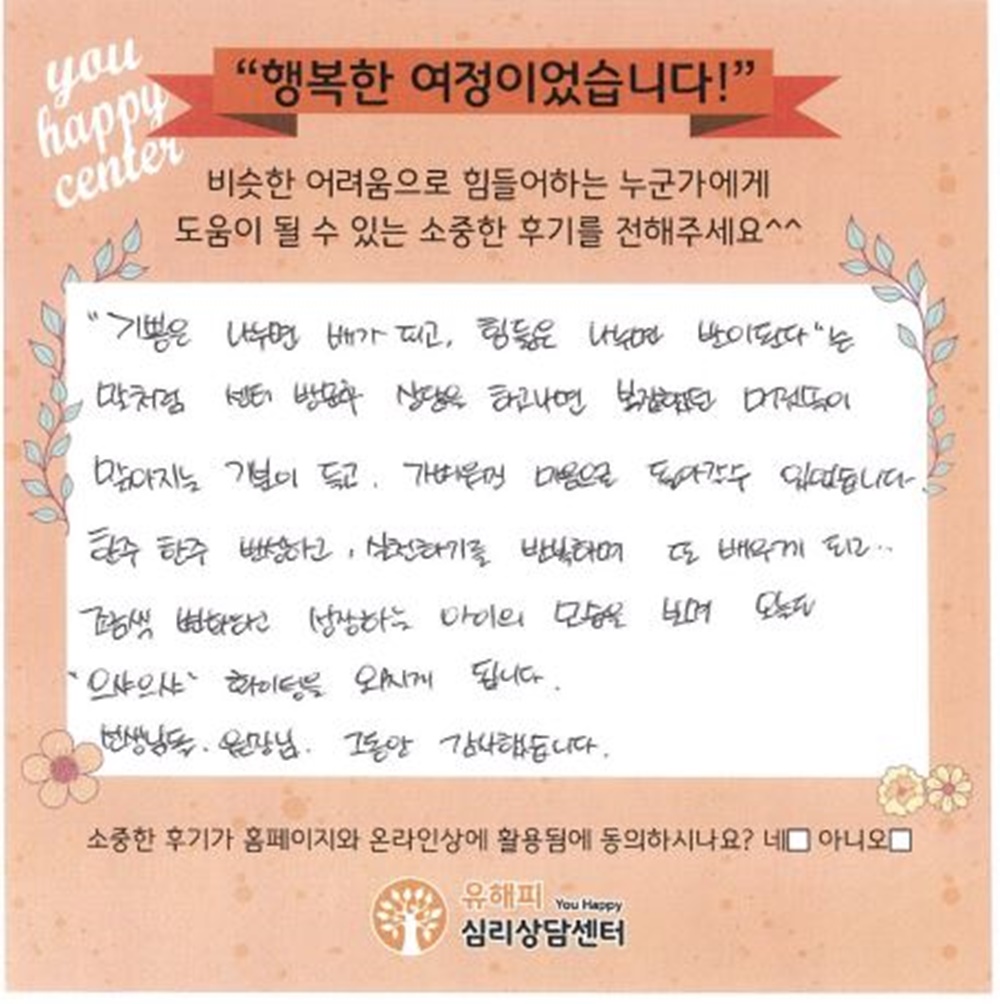 you
happy
center
“행복한 여정이었습니다!”
비슷한 어려움으로 힘들어하는 누군가에게
도움이 될 수 있는 소중한 후기를 전해주세요^^
"기쁨은 나누면 배가 되고, 힘듦은 나누면 반이된다"는
말처럼 센터 방문후 상담을 하고나면 복잡했던 머릿속이
맑아지는 기분이 들고. 가벼운 마음으로 돌아갈수 있었습니다
한주 한주 반성하고, 실천하기를 반복하며 또 배우게 되고..
조금씩 변화하고 성장하는 아이의 모습을 보며 오늘도
"으샤으샤" 화이팅을 외치게 됩니다.
선생님들. 원장님. 그동안 감사했습니다.
소중한 후기가 홈페이지와 온라인상에 활용됨에 동의하시나요? 네□ 아니오□
유해피 You Happy
심리상담센터